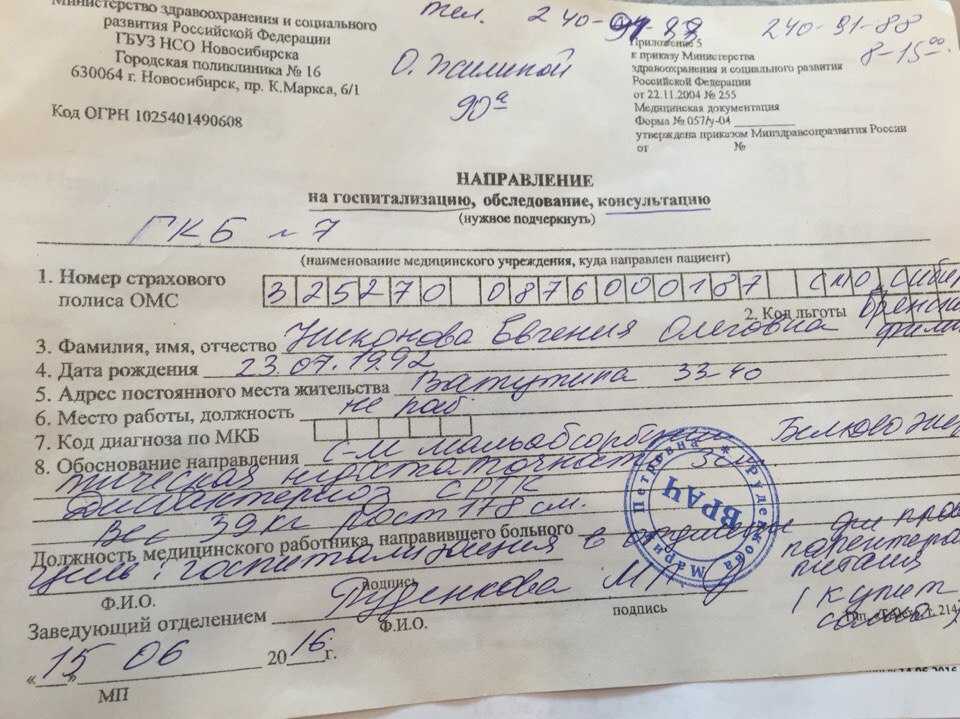 Министерство здравоохранения и социального
развития Российской Федерации
ГБУЗ НСО Новосибирска
Городская поликлиника № 16
630064 г. Новосибирск, пр. К.Маркса, 6/1
Код ОГРН 1025401490608
тел. 240-91-88 240-91-88
8-15 00
О. Жилиной
90а
Приложение 5
к приказу Министерства
здравоохранения и социального развития
Российской Федерации
от 22.11.2004 № 255
Медицинская документация
Форма № 057/у-04
утверждена приказом Минздравсоцразвития России
от №
НАПРАВЛЕНИЕ
на госпитализацию, обследование, консультацию
(нужное подчеркнуть)
ГКБ №7
(наименование медицинского учреждения, куда направлен пациент)
1. Номер страхового
полиса ОМС 325270 0876000187 СМО Сибир
2. Код льготы
3. Фамилия, имя, отчество Никонова Евгения Олеговна
4. Дата рождения 23.07.1992
5. Адрес постоянного места жительства Ватутина 33-40
6. Место работы, должность не раб
7. Код диагноза по МКБ
8. Обоснование направления С-м мальабсорбции Белковоэнер
тическая недостаточность
Дисбактериоз СРТК
Вес 39 кг рост 178 см.
Должность медицинского работника, направившего больного
Цель: госпитализация в для пров
парентера
питания
подпись
Ф.И.О.
Заведующий отделением Труденкова М П
Ф.И.О.
подпись
"15" 06 2016г.
МП
ВРАЧ
Труденкова Мария Петровна